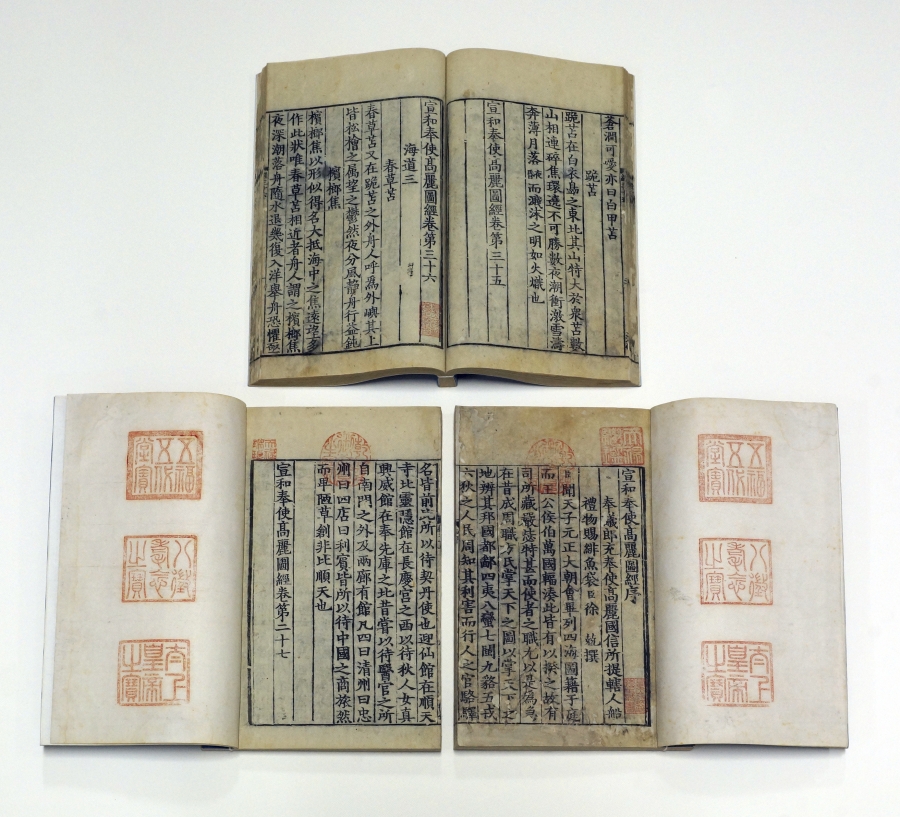 蒼潤可愛亦曰白甲苫
跪苫
跪苫在白衣島之東北其山特大於衆苫數
山相連碎焦環遶不可勝數夜潮衝激雪濤
奔薄月落夜而濺沫之明如火熾也
宣和奉使高麗圖經卷第三十五
宣和奉使高麗圖經卷第三十六
海道三
春草苫
春草苫又在跪苫之外舟人呼爲外嶼其上
皆松檜之属望之鬱然夜分風静舟行益鈍
檳榔焦
檳榔焦以形似得名大抵海中之焦遠望多
作此狀唯春草苫相近者舟人謂之檳榔焦
夜深潮落舟隨水退幾復入洋舉舟恐懼亟
宣和奉使高麗圖經序
奉議郎充奉使高麗國信所提轄人船
禮物賜緋魚袋臣徐兢撰
臣聞天子元正大朝會畢列四海圖籍于庭
而王公侯伯萬國輻湊此皆有以揆之故有
司所藏嚴毖特甚而使者之職尤以是爲急
在昔成周職方氏掌天下之圖以掌天下之
地辨其邦國都鄙四夷八蠻七閩九貉五戎
六狄之人民周知其利害而行人之官駱驛
名皆前之所以待契丹使也迎仙館在順天
寺北靈隱館在長慶宮之西以待狄人女真
興威館在奉先庫之北昔嘗以待醫官之所
自南門之外及兩廊有館凡四曰清州曰忠
州曰四店曰利賓皆所以待中國之商旅然
而卑陋草創非比順天也
宣和奉使高麗圖經卷第二十七
五福五代堂寶
八徵耄念之寶
太上皇帝之寶
五福五代堂寶
八徵耄念之寶
太上皇帝之寶